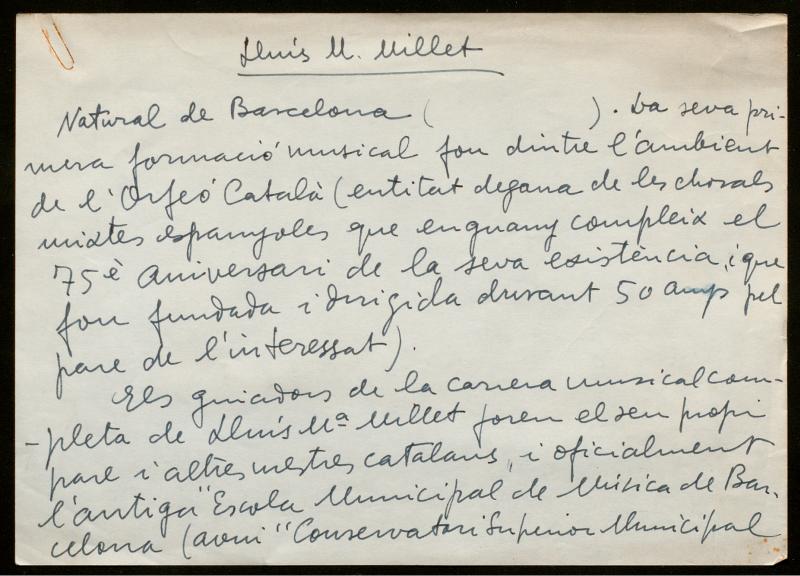 Lluís M. Millet
Natural de Barcelona ( ). La seva pri-
mera formació musical fou dintre l'ambient
de l'Orfeó Català (entitat degana de les chorals
mixtes espanyoles que enguany compleix el
75è aniversari de la seva existència, i que
fou fundada i dirigida durant 50 anys pel
pare de l'interessat).
Els guiadors de la carrera musical com-
-pleta de Lluís Mª Millet foren el seu propi
pare i altres mestres catalans, i oficialment
l'antiga "Escola Municipal de Música de Bar-
celona (avui "Conservatori Superior Municipal